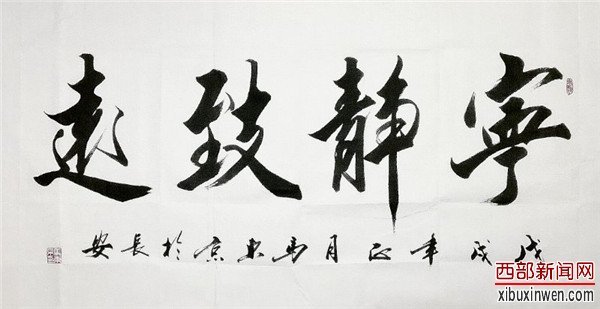 寧靜致遠
戊戌年正月马东京於长安
西部新闻网
xibuxinwen.com